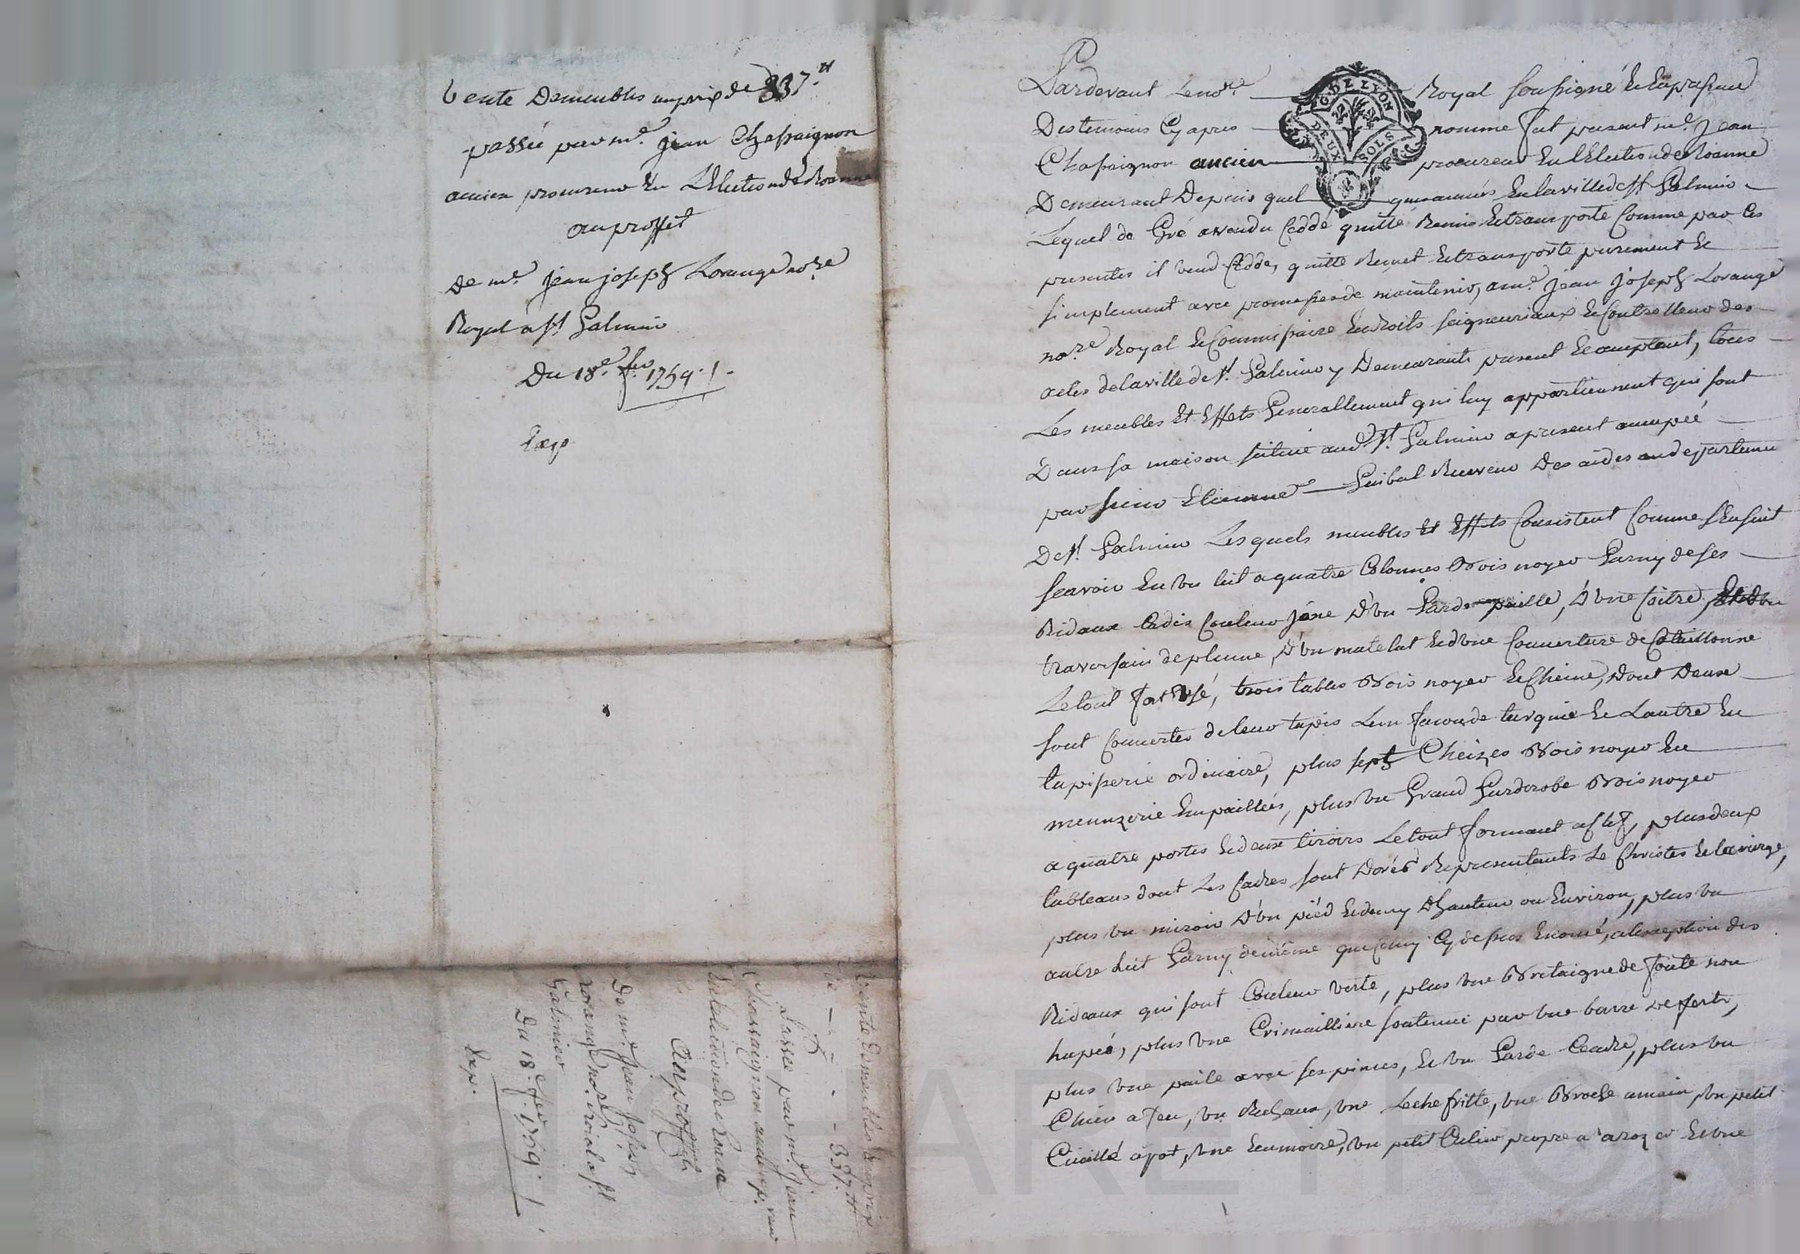 Vente De meubles au prix de 337.tt
passée par me. jean Chassaignon
ancien procureur En L'Election de Roanne
au proffit
De me. jean joseph Lorange nore
Royal a st Galmier
Du 18e. fer. 1759.
Exp
Vente De meubles au prix
de 337.tt
Passée par me. Jean
Chassaignon ancien procureur
en Lelection de Roanne
Au proffit
De me. Jean Joseph
Lorange nore. royal a st
Galmier
Du 18e. fer. 1759.
Exp.
G. DE LYON
DEUX SOLS
Pardevant Le nore. Royal soussigné En La presence
Des temoins Cy apres nommé fut present me. Jean
Chassaignon ancien procureur En L'Election de Roanne
Demeurant Depuis quelques années En la ville de st Galmier
Lequel de Gré a vendu Ceddé quitté Remis Et transporté Comme par Ces
presentes il vend Cedde, quitte Remet Et transporte purement Et
simplement avec promesse de maintenir, a me. jean joseph Lorange
nore. Royal Et Commissaire En droits seigneuriaux Et Controlleur des
actes de la ville de st. Galmier y Demeurant present Et acceptant, tous
Les meubles Et Effets Generallement qui luy appartiennent qui sont
Dans sa maison scituée aud. st. Galmier a present occupée
par sieur Etienne Guibal Receveur Des aides au departement
De st Galmier Lesquels meubles Et Effets Consistent Comme s'Ensuit
scavoir En un lit a quatre Colonnes Bois noyer Garny de ses
Rideaux Cadis Couleur jône D'un Garde paille, D'une Coitre,
traversain de plume, D'un matelat Et d'une Couverture de Catallonne
Le tout fort Usé, trois tables Bois noyer Et Cheine, Dont Deux
sont Couvertes de leur tapis L'un facon de turquie Et L'autre En
tapisserie ordinaire, plus sept Cheizes Bois noyer En
menuzerie Empaillées, plus un Grand Garderobe Bois noyer
a quatre portes Et deux tiroirs Le tout formant a clef, plus deux
tableaux dont Les Cadres sont Dorés Representants Le Christ Et la vierge,
plus un miroir D'un pied Et demy D'hauteur ou Environ, plus un
autre Lit Garny de même que Celuy Cy dessus Enoncé, a l'exeption des
Rideaux qui sont Couleur verte, plus une Bretaigne de fonte non
hapée, plus une Crimailliere soutenue par une barre De fert,
plus une paile avec ses pinces, Et un Garde Cendre, plus un
Chien a feu, un Rechaux, une Lechefritte, une Broche a main, un petit
Cueillé a pot, Une Ecumoire, un petit propre a Et une
Pascal CHAREYRON